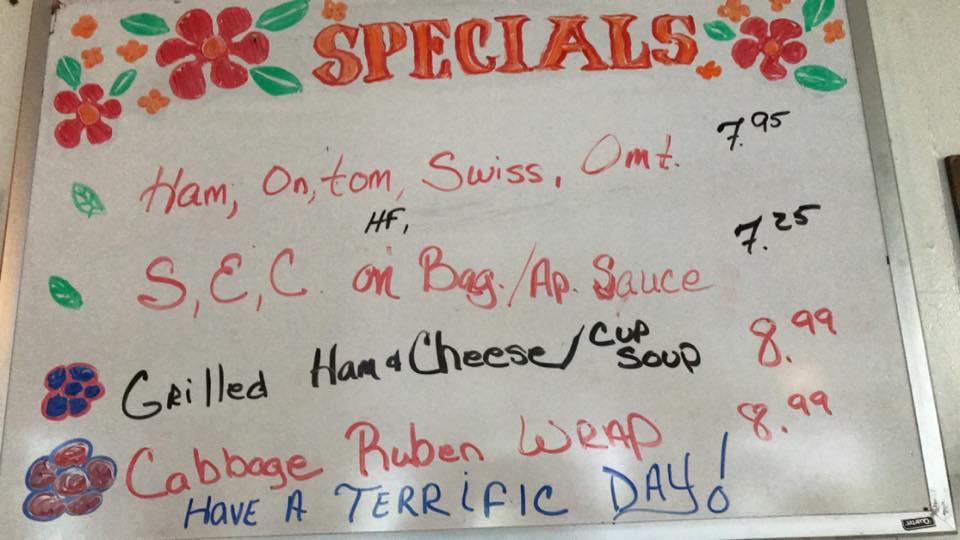 SPECIALS
Ham, On, tom, Swiss, Omt. 7.95
HF,
S, E, C on Bag./Ap. Sauce 7.25
Grilled Ham & Cheese/ CUP SOUP 8.99
Cabbage Ruben WRAP 8.99
HAVE A TERRIFIC DAY!
Quartet